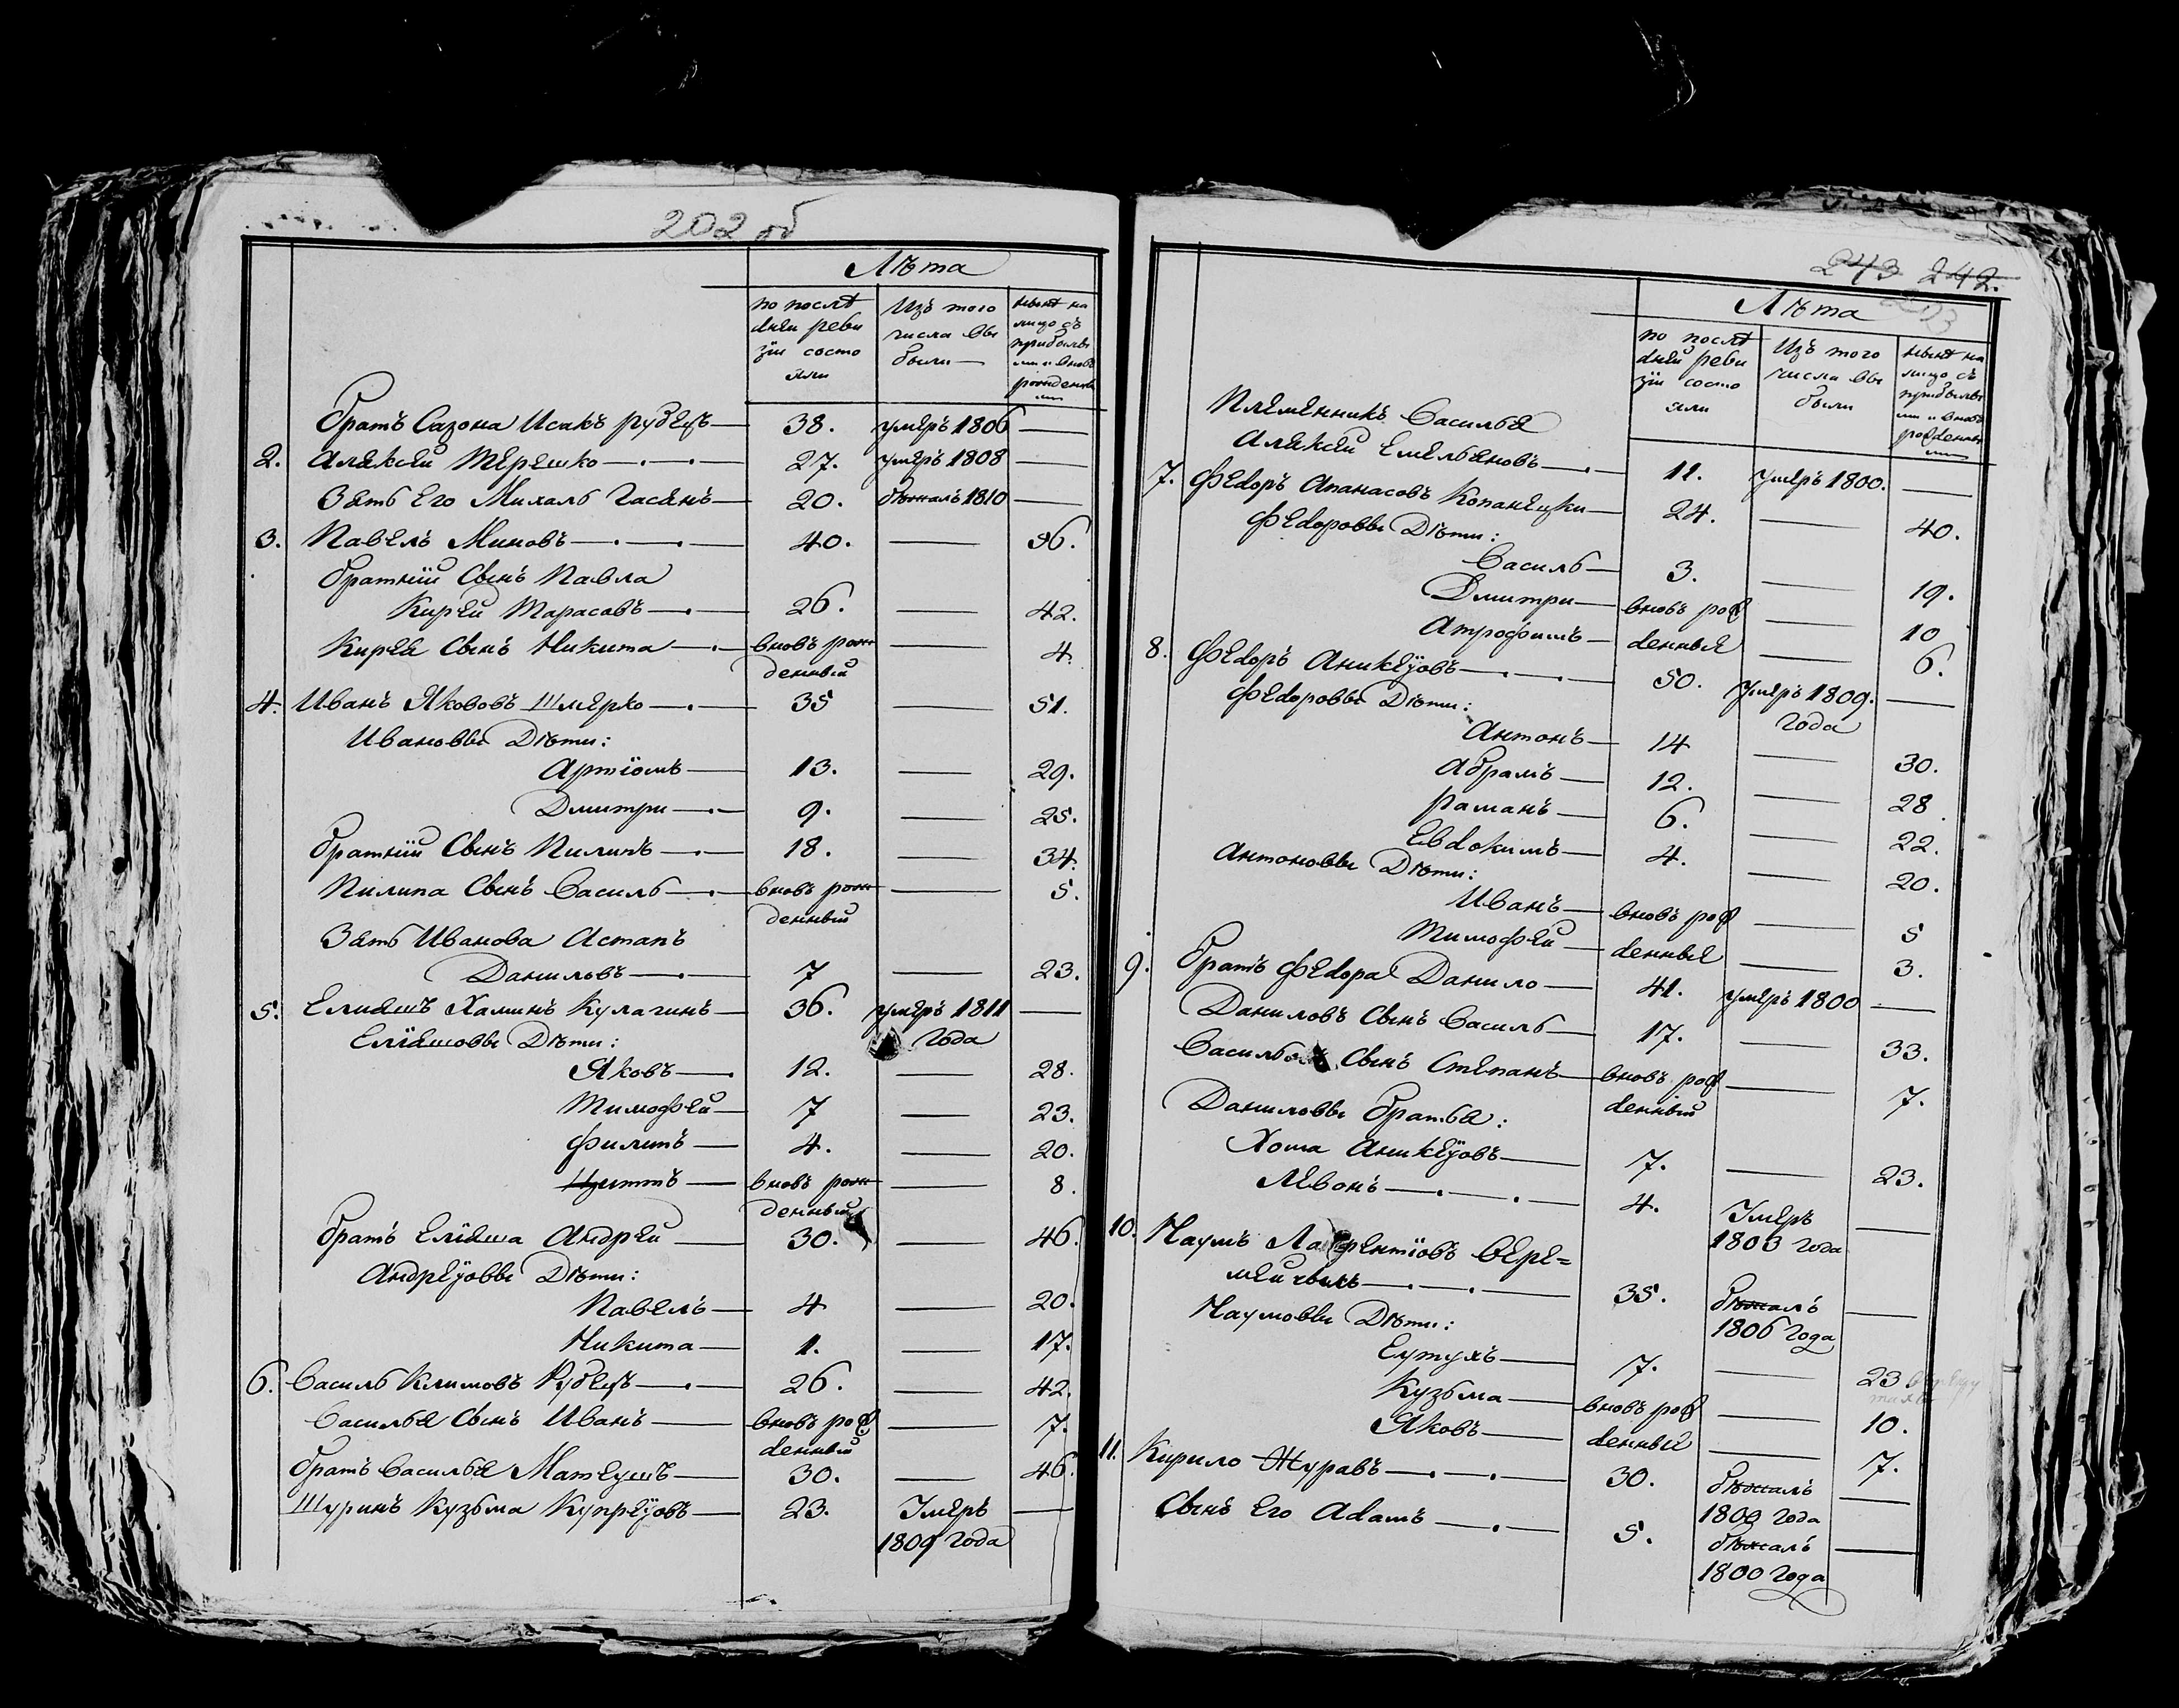 202 об
Лѣта
по послѣ
дней реви
зіи состо
яли
Изъ того
числа вы
были
нынѣ на
лицо съ
прибылы
ми и вновь
рожденны
ми
братъ Сазона Исакъ рубецъ 38. умеръ 1806
2. Алексей Терешко 27. умеръ 1808
Зять Его Михаль Гасянъ 20. бѣжалъ 1810
3. Павелъ Миновъ 40. 56.
братній Сынъ Павла
Кирей Тарасовъ 26. 42.
Кирея Сынъ Никита вновь рож 4.
денный
4. Иванъ Якововъ Шмерко 35 51.
Ивановы Дѣти:
Артіомъ 13. 29.
Дмитри 9. 25.
братній Сынъ Пилипъ 18. 34.
Пилипа Сынъ Василь вновь рож 5.
денный
Зять Иванова Астапъ
Даниловъ 7 23.
5. Елияшъ Хаминъ Кулагинъ 36. умеръ 1811
Еліяшовы Дѣти: года
Яковъ 12. 28.
Тимофей 7 23.
Филипъ 4. 20.
вновь рож 8.
денный
братъ Еліяша Андрей 30. 46.
Андреуовы Дѣти:
Павелъ 4 20.
Никита 1. 17.
6. Василь Климовъ Рубецъ 26. 42.
Василья Сынъ Иванъ вновь рож 7.
денный
братъ Василья Матеушъ 30. 46.
Шуринъ Кузьма Купреўовъ 23. Умеръ
1809 года
243 242.
Лѣта
по послѣ
дней реви
зіи состо
яли
Изъ того
числа вы
были
нынѣ на
лицо съ
прибылы
ми и вновь
рожденны
ми
Племенникъ Василья
Алексей Емельяновъ 11. умеръ 1800.
7. Федоръ Апанасовъ Копанецки 24. 40.
Федоровы Дѣти:
Василь 3. 19.
Дмитри вновь рож 10
Атрофимъ денныя 6.
8. Федоръ Аникеўовъ 50. Умеръ 1809.
Федоровы Дѣти: года
Антонъ 14 30.
Абрамъ 12. 28
раманъ 6. 22.
Евдокимъ 4. 20.
Антоновы Дѣти:
Иванъ вновь рож 5
Тимофей денныя 3.
9. братъ Федора Данило 41. умеръ 1800
Даниловъ Сынъ Василь 17. 33.
Сынъ Степанъ вновь рож 7.
денный
Даниловы братья:
Хома Аникеўовъ 7. 23.
Левонъ 4. Умеръ
1803 года
10. Наумъ Лаврентіовъ Вере=
мейчыкъ 35. бѣжалъ
1806 года
Наумовы Дѣти:
Еутухъ 7. 23
Кузьма вновь рож 10.
Яковъ денныя 7.
11. Кирило Журавъ 30. бѣжалъ
1800 года
Сынъ Его Adamъ 5. бѣжалъ
1800 года